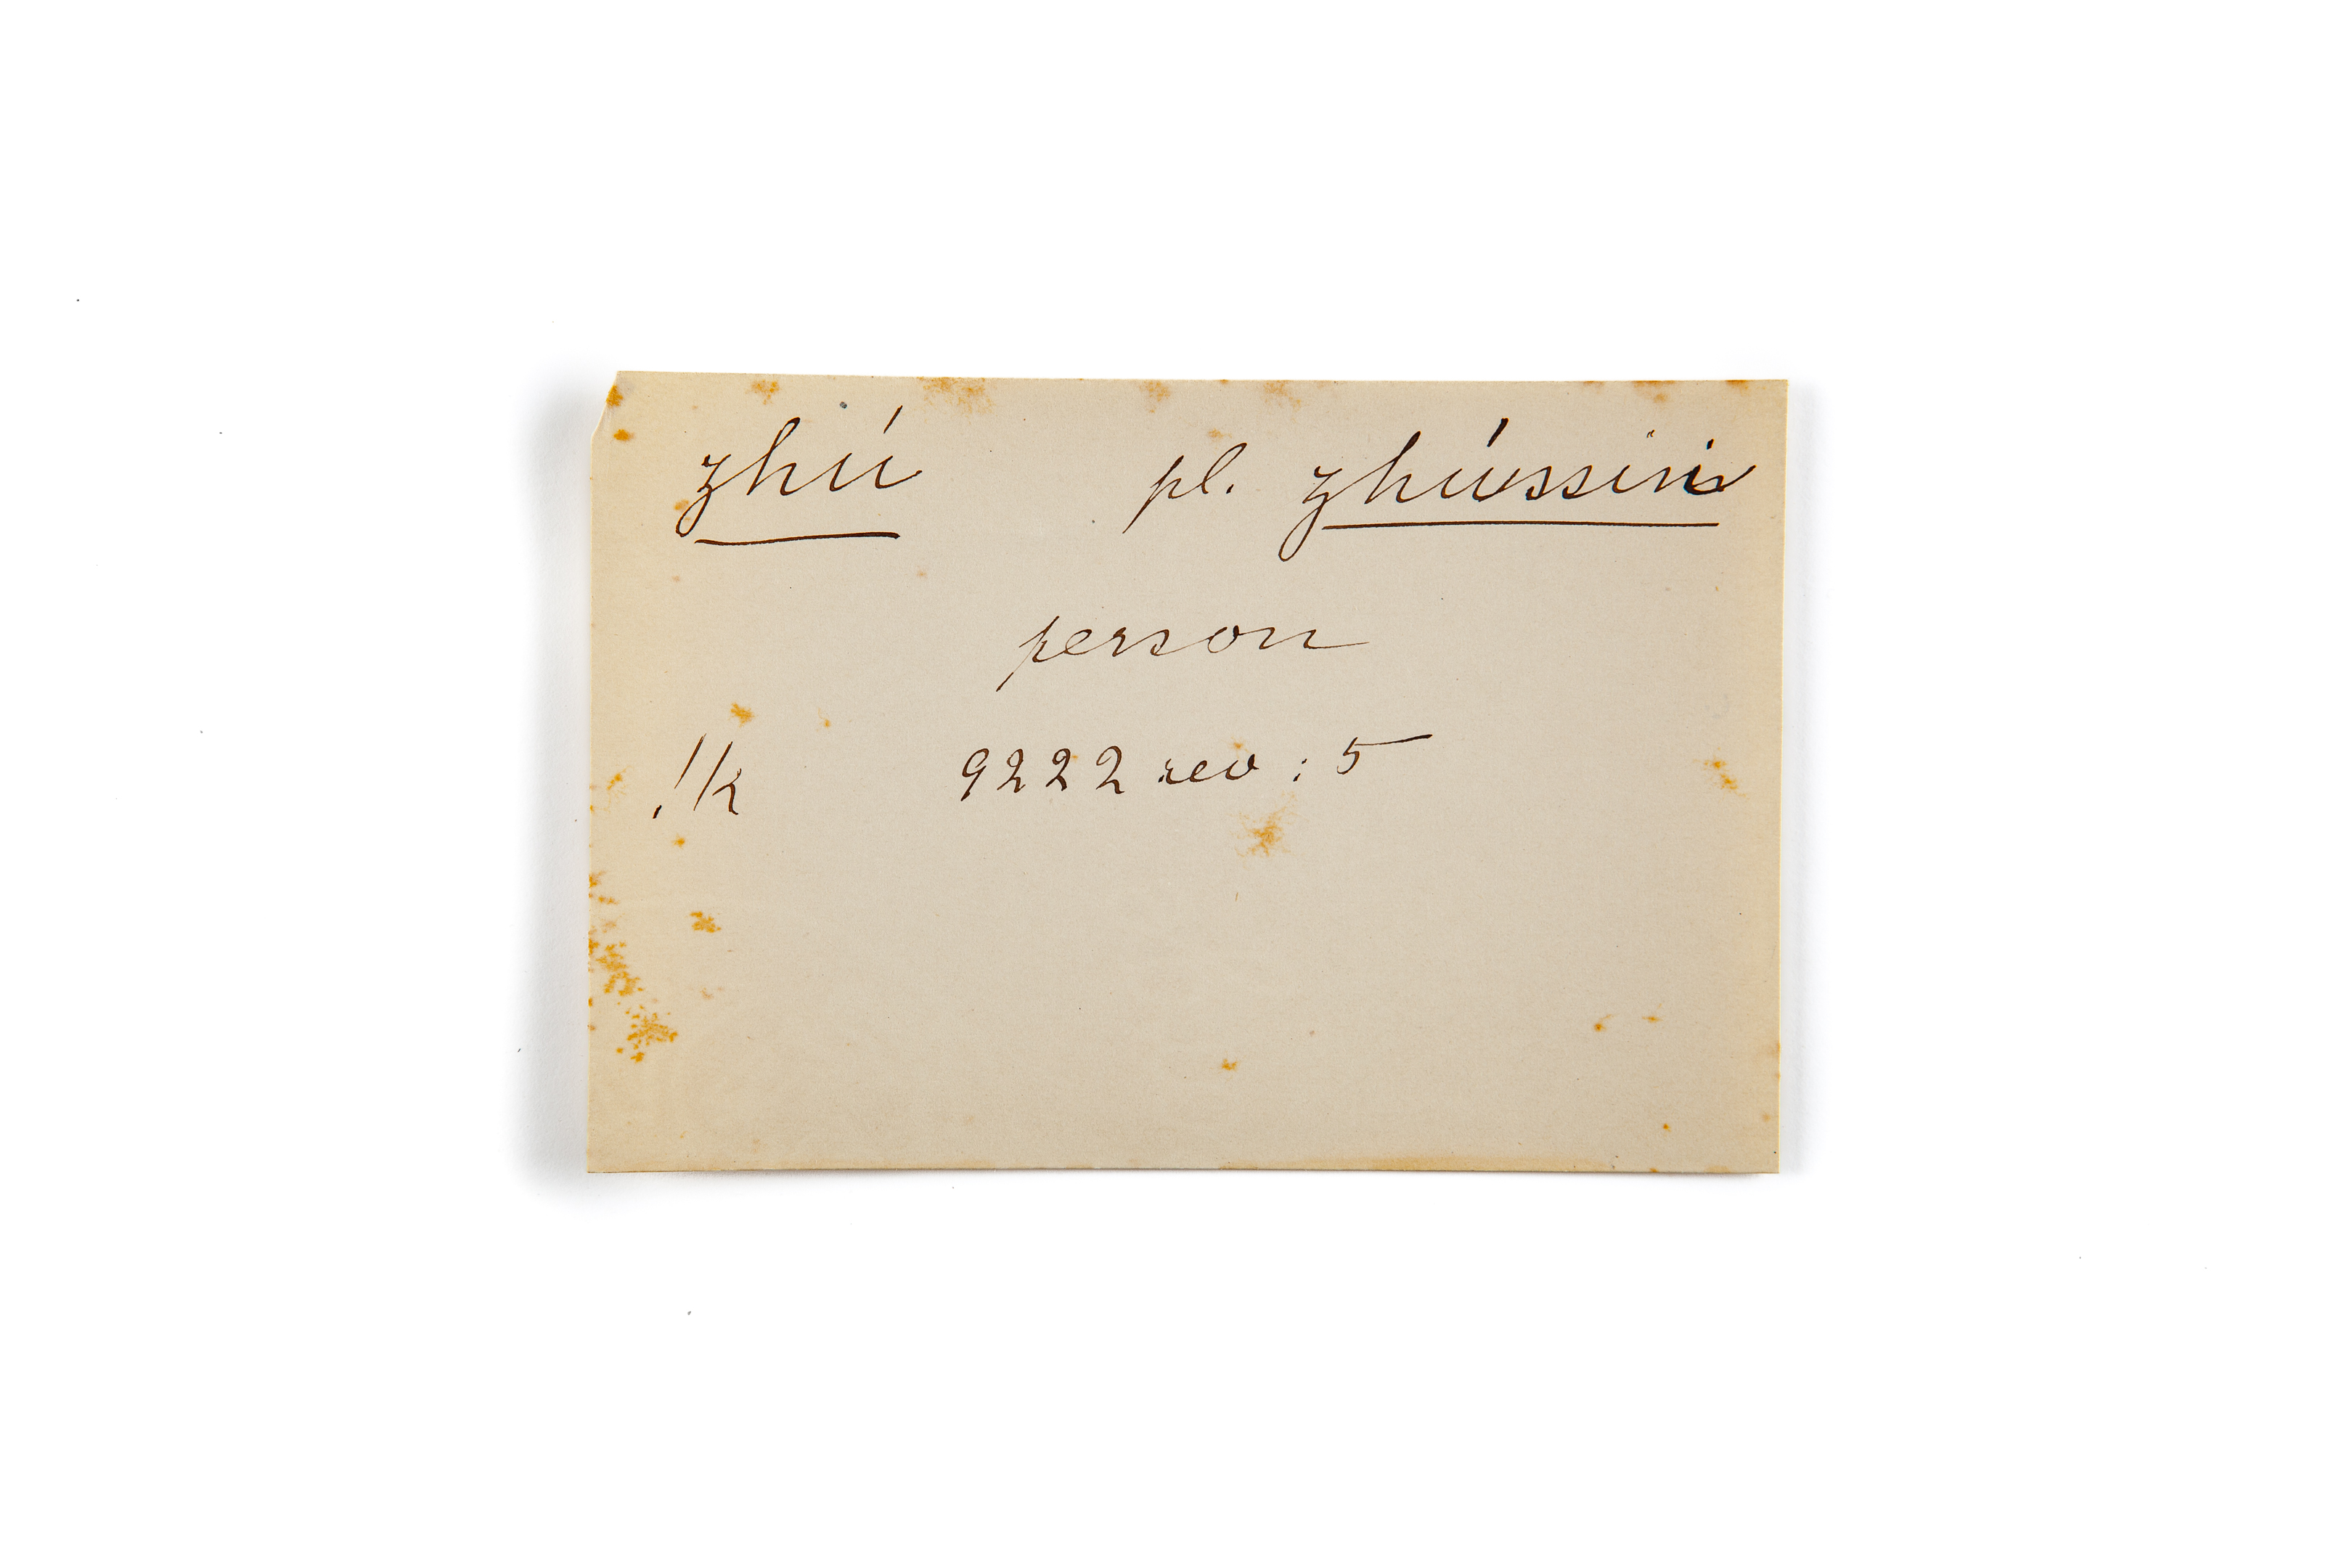 zhú pl. zhússin
person
!k 9222 rev : 5